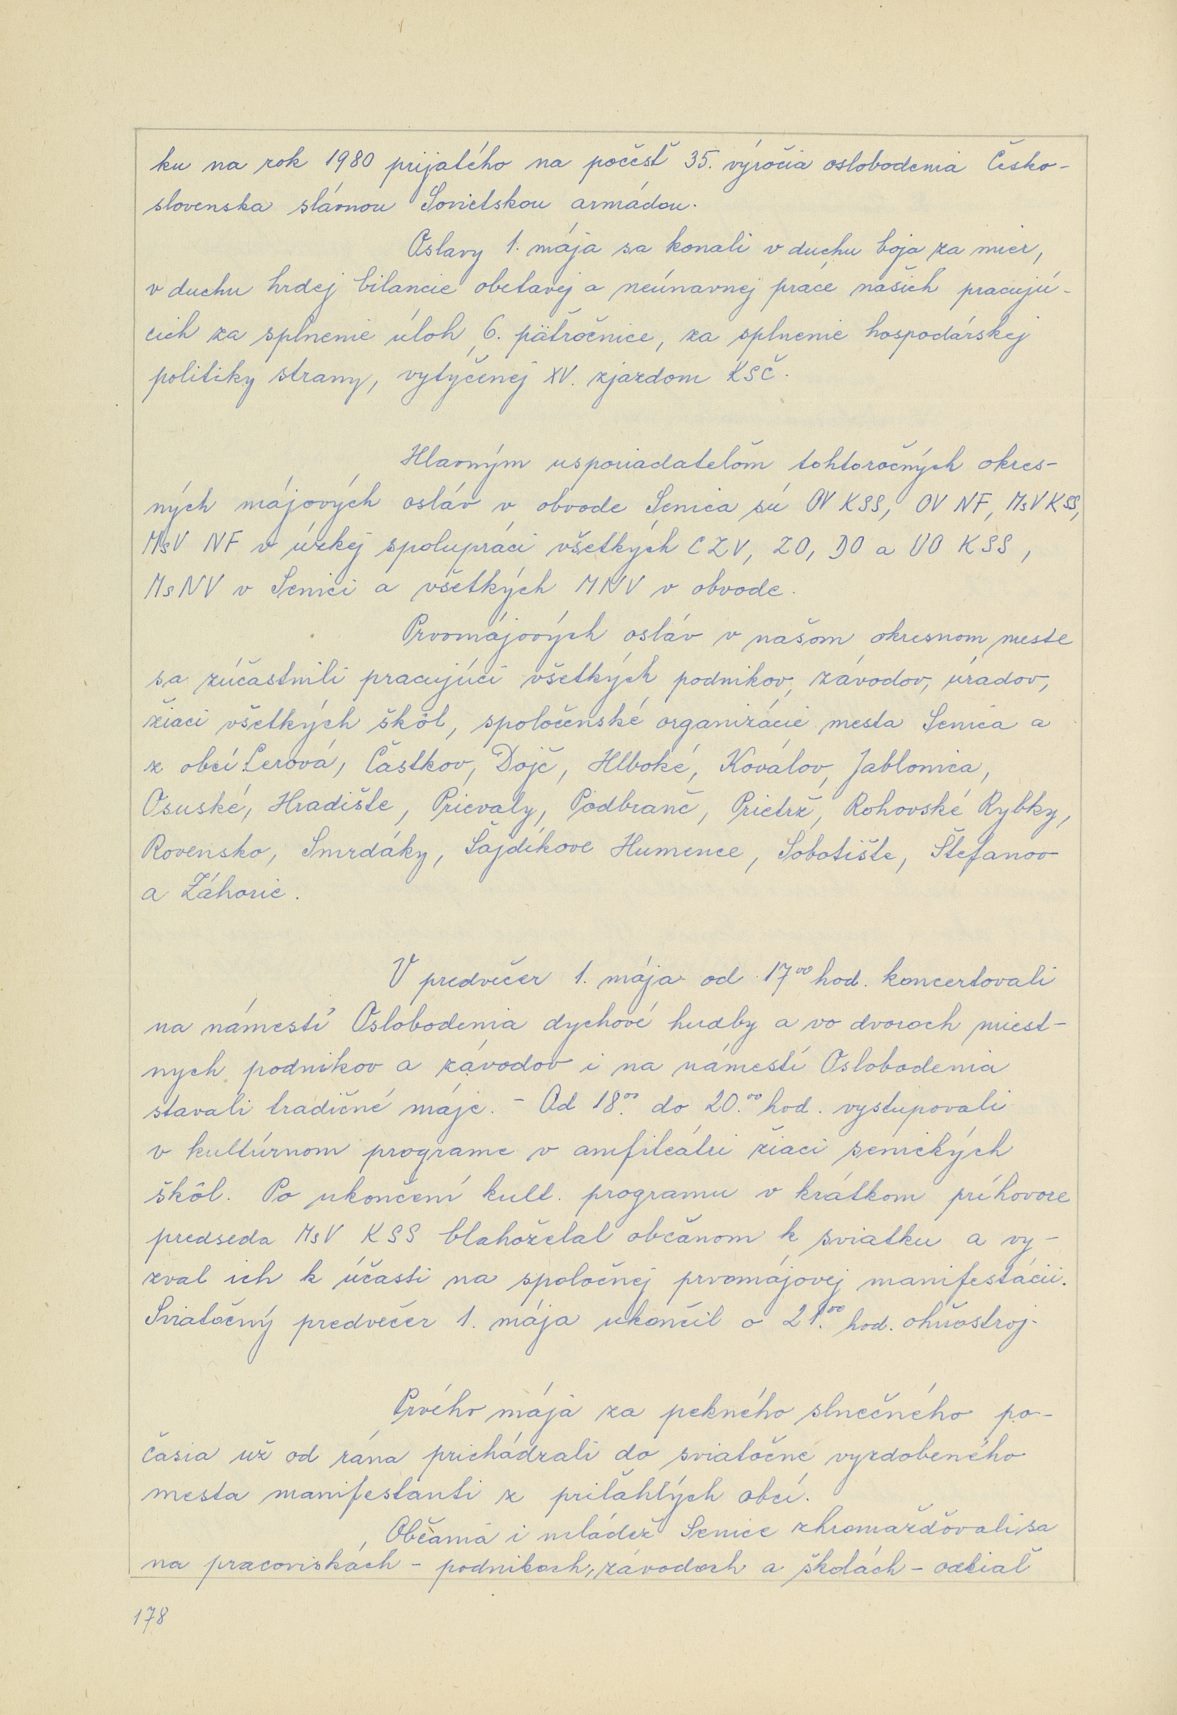 ku na rok 1980 prijatého na počesť 35. výročia oslobodenia Česko-
slovenska slávnou Sovietskou armádou.
Oslavy 1. mája sa konali v duchu boja za mier,
v duchu hrdej bilancie obetavej a neúnavnej práce našich pracujú-
cich za splnenie úloh 6. päťročnice, za splnenie hospodárskej
politiky strany, vytýčenej XV. zjazdom KSČ.
Hlavným usporiadateľom tohtoročných okres-
ných májových osláv v obvode Senica sú OV KSS, OV NF, MsV KSS,
MsV NF v úzkej spolupráci všetkých CZV, ZO, DO a UO KSS,
MsNV v Senici a všetkých MNV v obvode.
Prvomájových osláv v našom okresnom meste
sa zúčastnili pracujúci všetkých podnikov, závodov, úradov,
žiaci všetkých škôl, spoločenské organizácie mesta Senica a
z obcí Cerová, Častkov, Dojč, Hlboké, Koválov, Jablonica,
Osuské, Hradište, Prievaly, Podbranč, Prietrž, Rohovské Rybky,
Rovensko, Smrdáky, Šajdíkove Humence, Sobotište, Štefanov
a Záhorie.
V predvečer 1. mája od 17⁰⁰ hod. koncertovali
na námestí Oslobodenia dychové hudby a vo dvoroch miest-
nych podnikov a závodov i na námestí Oslobodenia
stavali tradičné máje. - Od 18.⁰⁰ do 20.⁰⁰ hod. vystupovali
v kultúrnom programe v amfiteátri žiaci senických
škôl. Po ukončení kult. programu v krátkom príhovore
predseda MsV KSS blahoželal občanom k sviatku a vy-
zval ich k účasti na spoločnej prvomájovej manifestácii.
Sviatočný predvečer 1. mája ukončil o 21.⁰⁰ hod. ohňostroj.
Prvého mája za pekného slnečného po-
časia už od rána prichádzali do sviatočne vyzdobeného
mesta manifestanti z priľahlých obcí.
Občania i mládež Senice zhromažďovali sa
na pracoviskách - podnikoch, závodoch a školách - odtiaľ
178